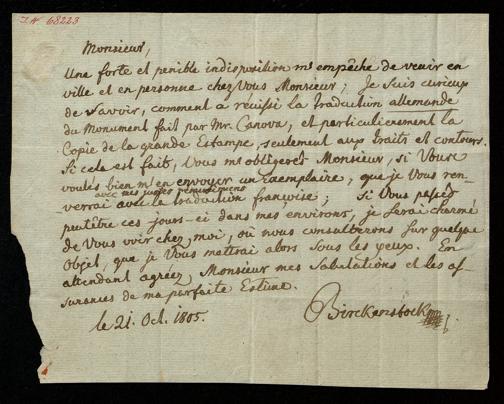 I.N. 68223
Monsieur,
Une forte et penible indisposition m'empêche de venir en
ville et en personne chez Vous Monsieur; Je suis curieux
de savoir, comment a réussi la traduction allemande
du Monument fait par Mr. Canova, et particulierement la
Copie de la grande Estampe, seulement aux traits et contours.
Si cela est fait, Vous m'obligerez Monsieur, si Vous
voulés bien m'en envoyer un exemplaire, que je Vous ren-
avec mes justes remercimens
verrai avec la traduction françoise; Si Vous passés
peutêtre ces jours-ci dans mes environs, je serai charmé
de Vous voir chez moi, où nous consulterons sur quelque
Objet, que je Vous mettrai alors sous les yeux. En
attendant agréez Monsieur mes Salutations et les as-
surances de ma parfaite Estime.
le 21. Oct. 1805.
Birckenstock